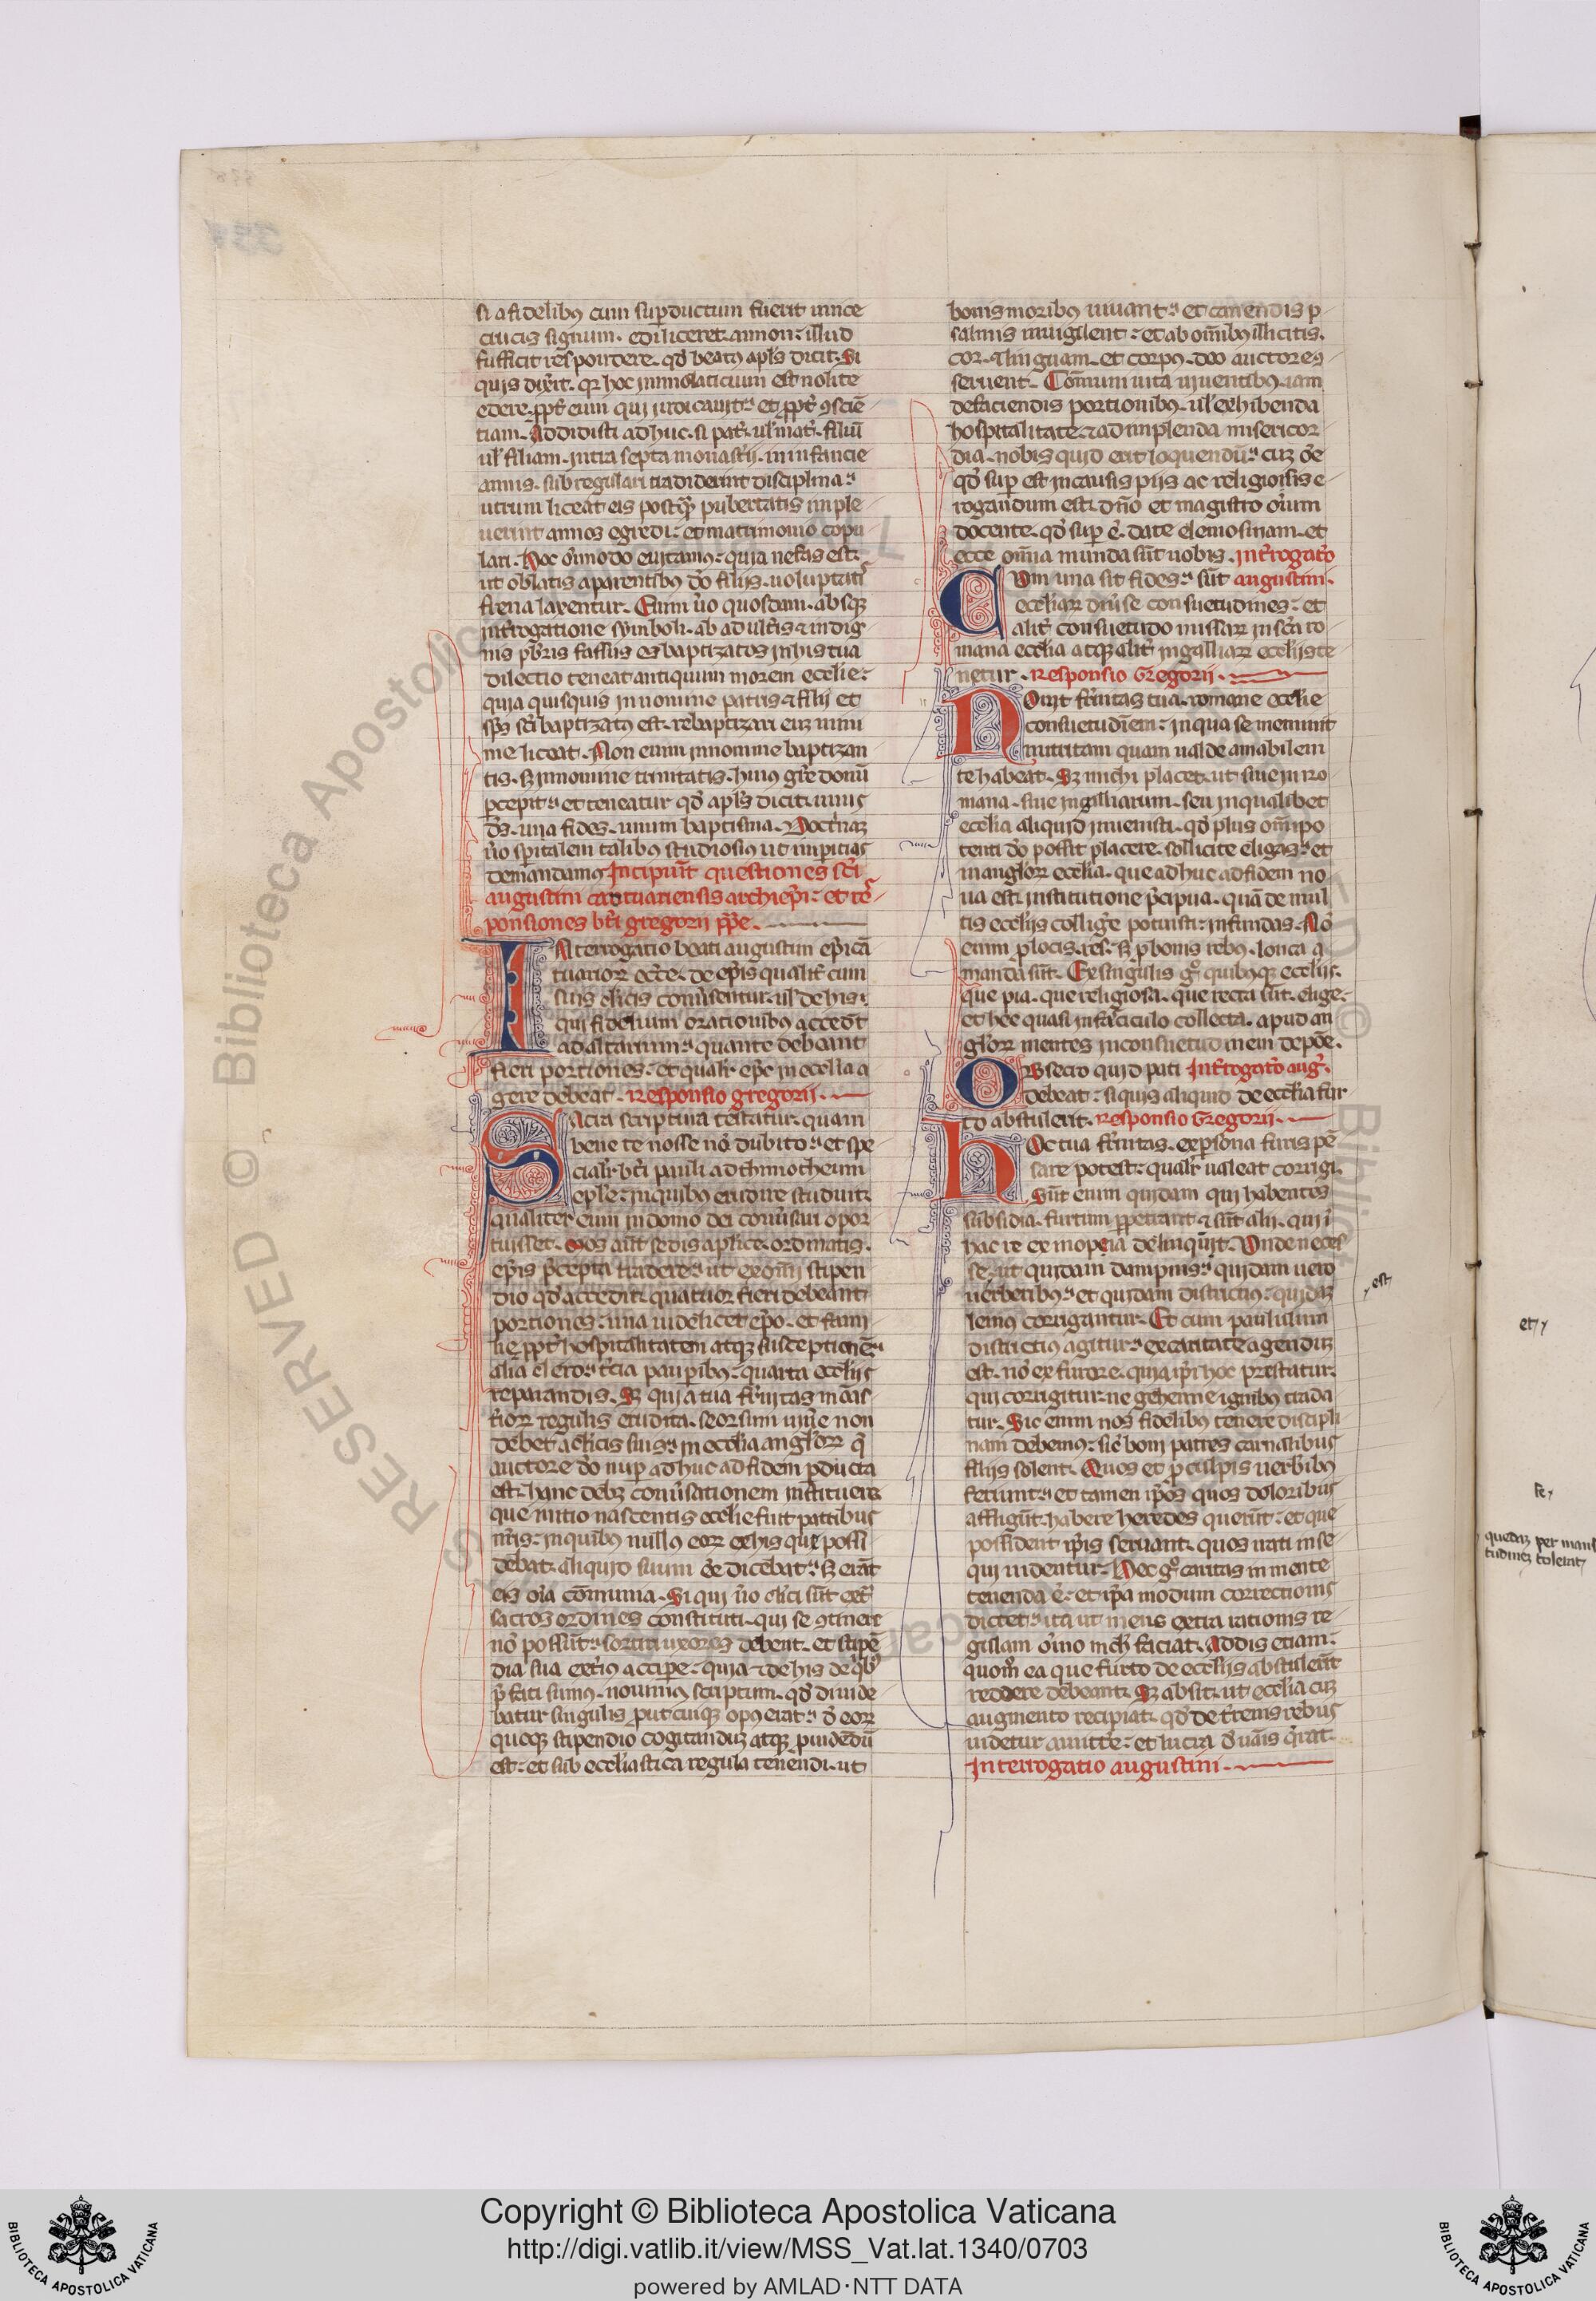 si a fidelibꝰ cum suꝑductum fuerit uince
crucis signum. edi liceret. an non: illud
sufficit respondere. qd beatꝰ apls dicit. Si
quis dixit. qr hoc immolaticium est nolite
edere. ꝓpt eum qui iudicauit: et ꝓpt ꝯsciē
tiam. Addidisti adhuc. si pat. ul mat. filiū
ul filiam. intra septa monastij. in infancie
annis. sub regulari tradiderint disciplina:
utrum liceat eis postqꝫ pubertatis imple
uerint annos egredi: et matrimonio copu
lari. Hoc oīmodo euitamꝰ. quia nefas est.
ut oblatis a parentibꝰ dō filijs. uoluptatis
frena laxentur. Eum ūo quosdam. absqꝫ
interrogatione symboli. ab adultis ⁊ indig
nis pbris fassus es baptizatos in his tua
dilectio teneat antiquum morem ecclie:
quia quisquis in nomine patris ⁊ filij et
sps sci baptizatꝰ est. rebaptizari eum mini
me liceat. Non enim in nomine baptizan
tis. sꝫ in nomine trinitatis. huiꝰ gre donū
ꝑcepit: et teneatur qd apls dicit. unus
ds. una fides. unum baptisma. Doctinaꝫ
ūo spitalem talibꝰ studiosiꝰ ut imꝑtias
demandamꝰ Incipiūt questiones sci
augustini cantuariensis archiepi: et res
ponsiones bti gregorii ppe.
INterrogatio beati augustini epi cā
tuarioꝝ eccle. de epis qualit cum
suis clicis conūsentur. ul de his
qui fidelium orationibꝰ accedūt
ad altarium: quante debeant
fieri portiones. et qualr epc in ecclia a
gere debeat. Responsio gregorii.
SAcra scriptura testatur. quam
bene te nosse nō dubito: et spe
cialr bti pauli ad thimotheum
eple: in quibꝰ erudire studuit.
qualiter eum in domo dei conūsari opor
tuisset. Mos aūt sedis aplice. ordinatis.
epis pcepta tradere: ut ex omī stipen
dio qd accedit. quatuor fieri debeant
portiones. una uidelicet epo. et fami
lie ꝓpt hospitalitatem atqꝫ susceptionē:
alia clero: tcia pauꝑibꝰ. quarta eccliis
reparandis. Sꝫ quia tua fritas monas
tioꝝ regulis erudita. seorsum uiuere non
debet a clicis suis: in ecclia angloꝝ q
auctore dō nuꝑ adhuc ad fidem ꝑducta
est. hanc debꝫ conūsationem instituere
que initio nascentis ecclie fuit patribus
nris. in quibꝰ nullꝰ eoꝝ ex his que possi
debat. aliquid suum ēe dicebat: sꝫ erāt
eis oīa cōmunia. Si qui ūo clici sūt extra
sacros ordines constituti. qui se ꝯtinere
nō possūt: sortiri uxores debent. et stipē
dia sua exteriꝰ accipe. quia ⁊ de his de qbꝰ
pfati sumus. nouimꝰ scriptum. qd diuide
batur singulis ꝓut cuiqꝫ opꝰ erat: de eoꝝ
quoqꝫ stipendio cogitanduꝫ atqꝫ ꝓuidēdū
est. et sub eccliastica regula tenendi. ut
bonis moribꝰ uiuant: et canendis p
salmis inuigilent: et ab omibꝰ illicitis.
cor. ⁊ linguam. et corpꝰ. deo auctore ꝯ
seruent. Cōmuni uita uiuentibꝰ. iam
de faciendis portionibꝰ. ul exhibenda
hospitalitate. ⁊ adimplenda misericor
dia. nobis quid erit loquendū: cuꝫ oē
qd suꝑ est in causis pijs ac religiosis e
rogandum est. dno et magistro oīum
docente. qd suꝑ ē. date elemosinam. et
ecce omia munda sūt uobis. Interrogatō
CUm una sit fides: sūt augustini.
eccliaꝝ diūse consuetudines: et
alit consuetudo missaꝝ in sca ro
mana ecclia atqꝫ alit in galliaꝝ ecclijs te
netur. Responsio Gregorii.
NOuit fritas tua. romane ecclie
consuetudinem: in qua se meminit
nutritam quam ualde amabilem
te habeat. Sꝫ michi placet. ut siue in ro
mana. siue in galliarum. seu in qualibet
ecclia aliquid inuenisti. qd plus omipo
tenti dō possit placere. sollicite eligas: et
in angloꝝ ecclia. que adhuc ad fidem no
ua est. institutione pcipua. quā de mul
tis ecclijs collige potuisti: infundas. Nō
enim ꝓ locis. res: sꝫ ꝓ bonis rebꝰ. loca a
manda sūt. Ex singulis gͦ quibusqꝫ ecclijs.
que pia. que religiosa. que recta sūt. elige.
et hec quasi in fasciculo collecta. apud an
gloꝝ mentes in consuetudinem depōe.
OBsecro quid pati Interrogatō aug.
debeat: si quis aliquid de ecclia fur
to abstulerit. Responsio Gregorii.
HOc tua fritas. ex ꝑsona furis pē
sare potest: qualr ualeat corrigi.
Sūt enim quidam qui habentes
subsidia. furtum ꝑpetrant ⁊ sūt alij. qui ī
hac re ex inopia delinquūt. Unde neces
se. ut quidam dampnis: quidam uero
uerberibꝰ: et quidam districtiꝰ: quidaꝫ
leniꝰ corrigantur. Et cum paululum
districtiꝰ agitur: ex caritate agenduꝫ
est. nō ex furore. quia ipi hoc prestatur.
qui corrigitur. ne gehenne ignibꝰ trada
tur. Sic enim nos fidelibꝰ tenere discipli
nam debemꝰ: sic boni patres carnalibus
filijs solent. Quos et ꝓ culpis uerberibꝰ
feriunt: et tamen ipos quos doloribus
affligūt. habere heredes querūt: et que
possident ipis seruant. quos irati inse
qui uidentur. Hec gͦ caritas in mente
tenenda ē. et ipa modum correctionis
dictet: ita ut mens extra rationis re
gulam oīno nichil faciat. Addis etiam:
quomͦ ea que furto de ecclijs abstulerīt
reddere debeant. Sꝫ absit. ut ecclia cuꝫ
augmento recipiat. qd de terrenis rebus
uidetur amitte: et lucra de uanis qrat.
Interrogatio augustini.
est
et
quedaꝫ per man
tudineꝫ tolerat
© Biblioteca Apostolica Vaticana
Copyright © Biblioteca Apostolica Vaticana
http://digi.vatlib.it/view/MSS_Vat.lat.1340/0703
powered by AMLAD·NTT DATA
BIBLIOTECA APOSTOLICA VATICANA
BIBLIOTECA APOSTOLICA VATICANA